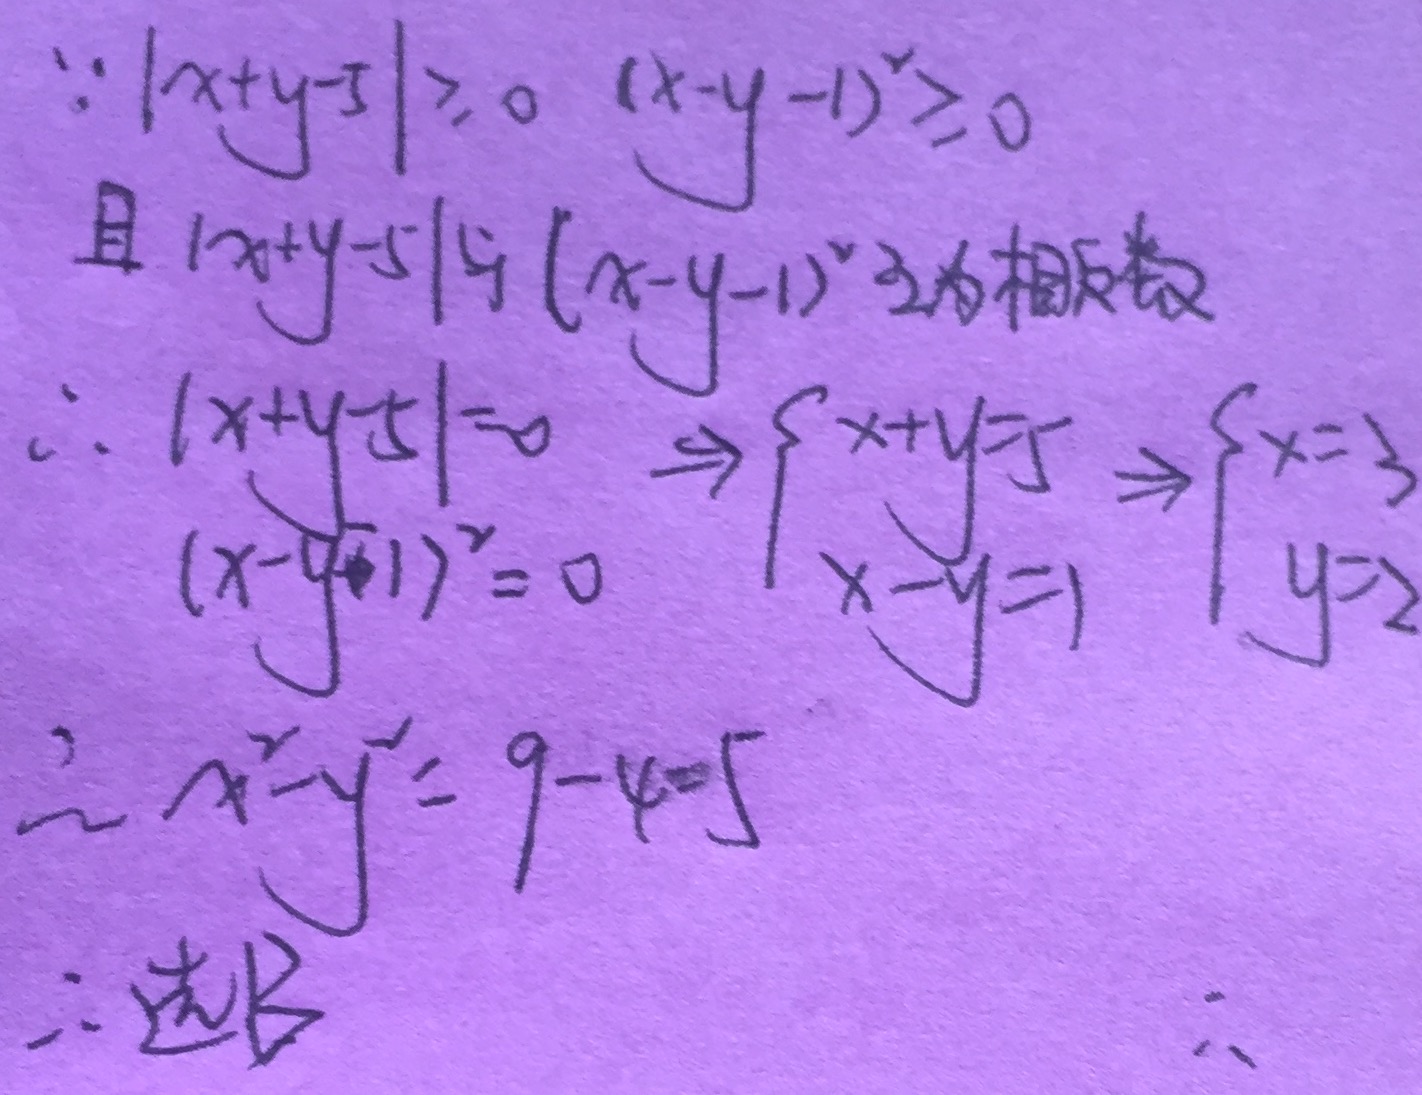 ∵ |x+y-5|≥0 (x-y-1)²≥0
且 |x+y-5|与(x-y-1)²互为相反数
∴ |x+y-5|=0 ⇒ { x+y=5 ⇒ { x=3
(x-y-1)²=0 x-y=1 y=2
∴ x²-y²=9-4=5
∴选B ∴